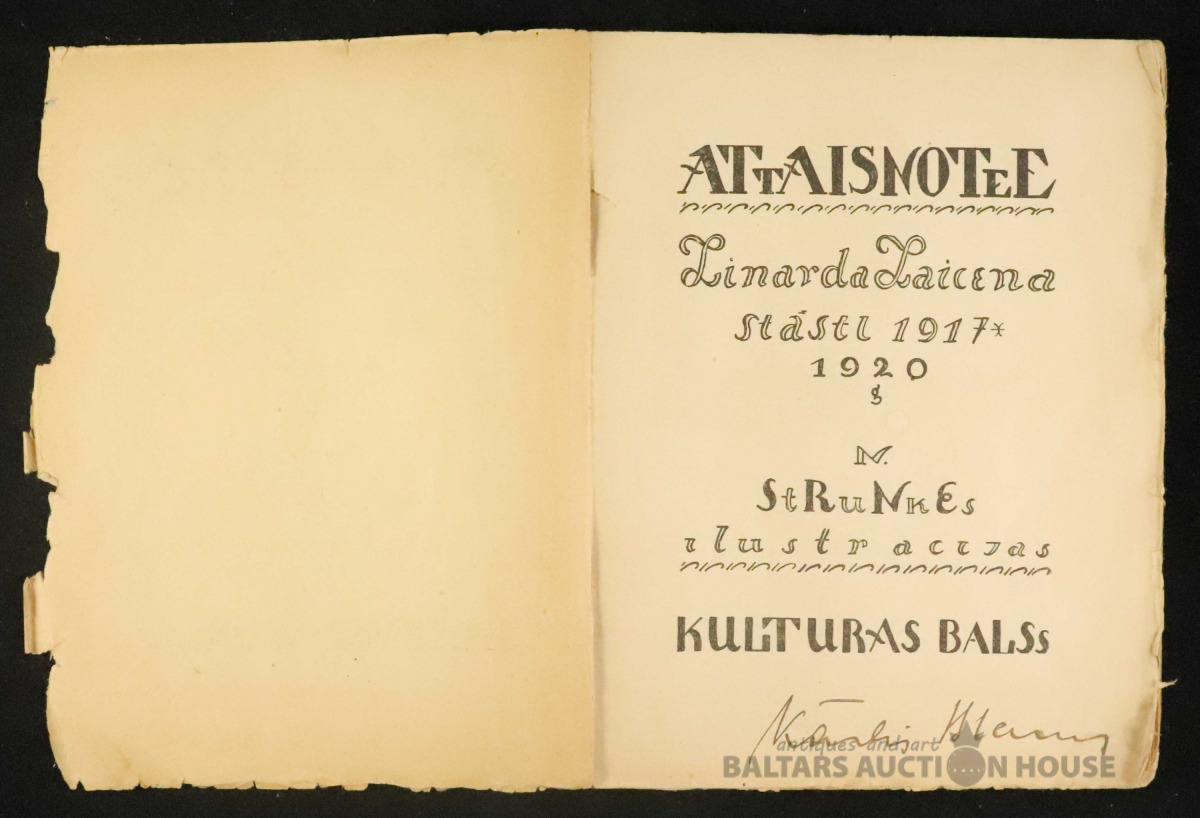 ATTAISNOTEE
Linarda Laicena
stāsti 1917*
1920
M.
StRuNkEs
ilustracijas
KULTURAS BALSs
Kārlis
antiques and art
BALTARS AUCTION HOUSE